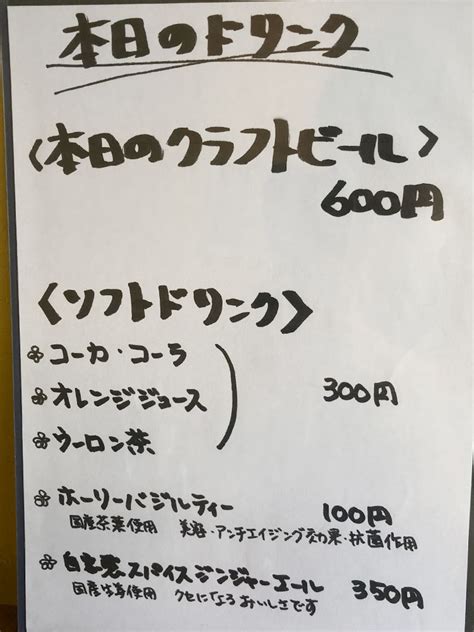 本日のドリンク
〈本日のクラフトビール〉
600円
〈ソフトドリンク〉
コーカ・コーラ
オレンジジュース
300円
ウーロン茶
ホーリーバジルティー 100円
国産茶葉使用 美容・アンチエイジング効果・抗菌作用
自家製スパイスジンジャーエール 350円
国産生姜使用 クセになるおいしさです